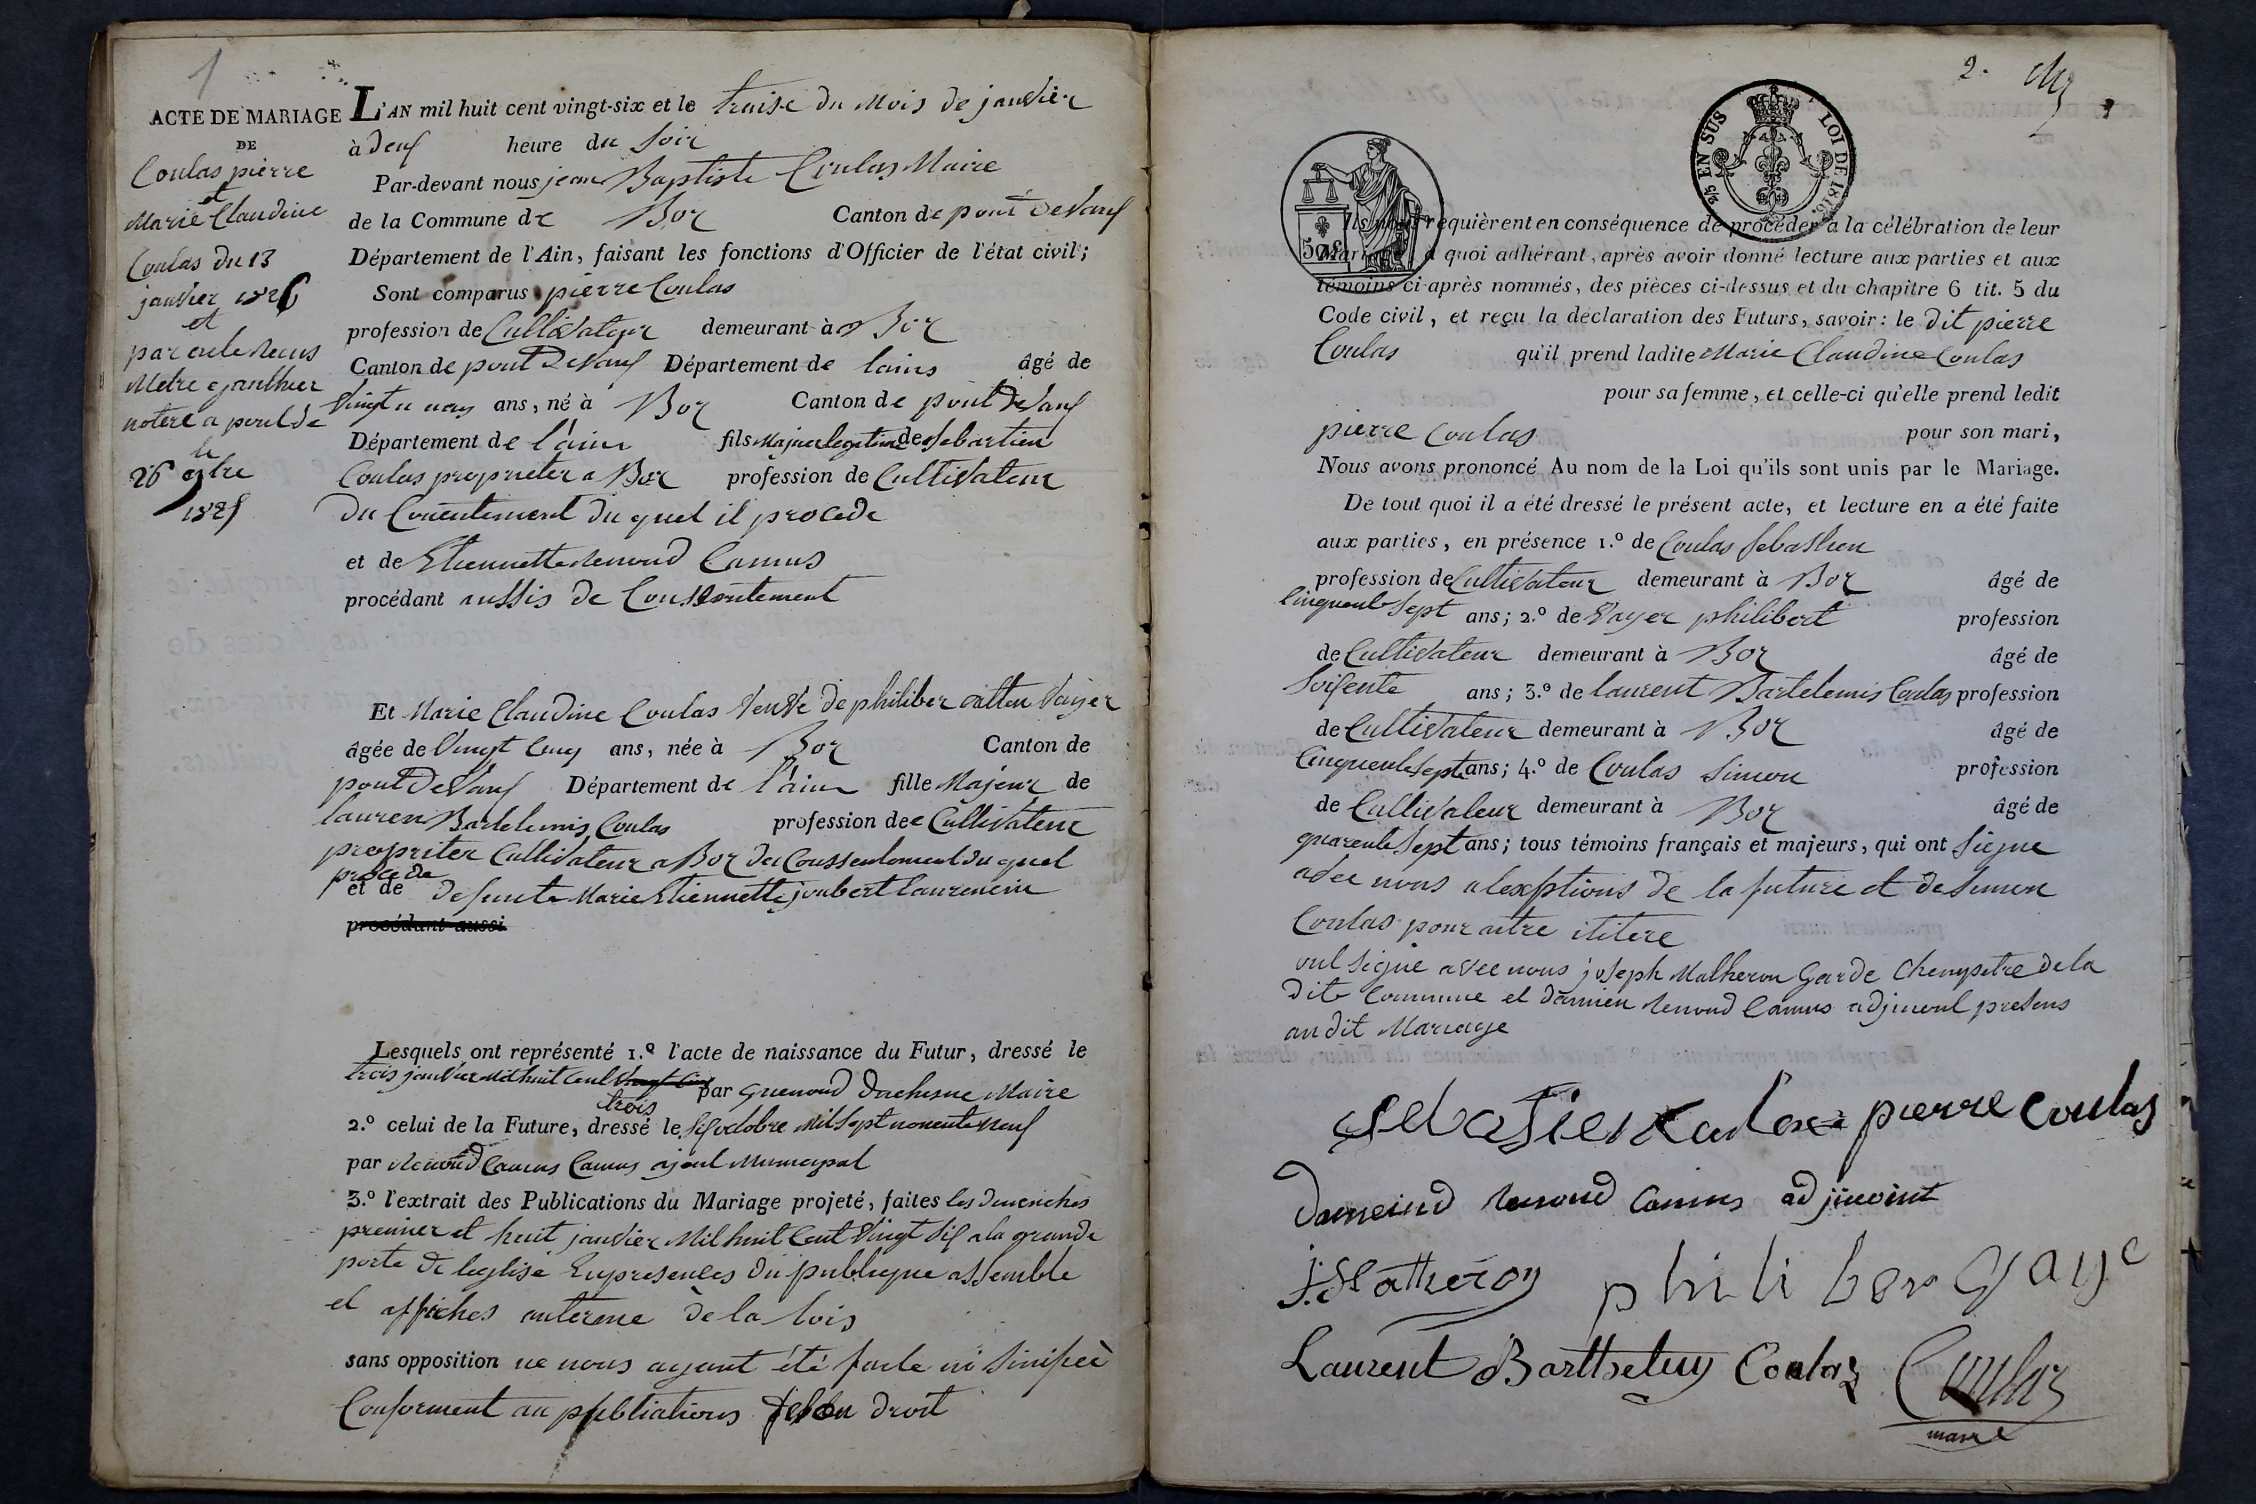 1
ACTE DE MARIAGE
DE
Coulas pierre
et
Marie Claudine
Coulas du 13
janvier 1826
et
par
Metre gauthier
notere a pont de
le
26
1825
L'AN mil huit cent vingt-six et le traise du Mois de janvier
à deux heure du Soir
Par-devant nous jean Baptiste Coulas Maire
de la Commune de Boz Canton de pont de Vaux
Département de l'Ain, faisant les fonctions d'Officier de l'état civil;
Sont comparus pierre Coulas
profession de Cultivateur demeurant à Boz
Canton de pont De Vaux Département de lains âgé de
Vingt ans, né à Boz Canton de pont De Vaux
Département de l'ain fils Majeur legetime de Sebastien
Coulas proprieter a Boz profession de Cultivateur
du Consentement du quel il procede
et de Etiennette renoud Camus
procédant aussis de Consentement
Et Marie Claudine Coulas Veuve de philiber Vayer
âgée de Vingt Cinq ans, née à Boz Canton de
pont De Vaux Département de l'ain fille Majeur de
lauren Bartelemis Coulas profession dee Cultivateur
propriter Cultivateur a Boz du Conssentement du quel
procede
et de defunte Marie Etiennette joubert laurencin
procédant aussi
Lesquels ont représenté 1.º l'acte de naissance du Futur, dressé le
trois janvier Mil huit Cent Vingt Cinq par guenoud duchesne Maire
trois
2.º celui de la Future, dressé le Six octobre Mil Sept nonente neuf
par Renoud Camus Camus ajout Municipal
3.º l'extrait des Publications du Mariage projeté, faites les dimenches
premier et huit janvier Mil huit Cent Vingt Six a la grande
porte de leglise En presences du publique assemble
et affiches au terme de la lois
sans opposition ne nous ayant été faite ni Sinifieè
Conforment au publiations droit
2.
2/5 EN SUS LOI DE 1816.
50
Ils nous requièrent en conséquence de procéder à la célébration de leur
Mariage, à quoi adhérant, après avoir donné lecture aux parties et aux
témoins ci-après nommés, des pièces ci-dessus et du chapitre 6 tit. 5 du
Code civil, et reçu la déclaration des Futurs, savoir: le dit pierre
Coulas qu'il prend ladite Marie Claudine Coulas
pour sa femme, et celle-ci qu'elle prend ledit
pierre Coulas pour son mari,
Nous avons prononcé Au nom de la Loi qu'ils sont unis par le Mariage.
De tout quoi il a été dressé le présent acte, et lecture en a été faite
aux parties, en présence 1.º de Coulas Sebastien
profession de Cultivateur demeurant à Boz âgé de
Cinquente Sept ans; 2.º de Vayer philibert profession
de Cultivateur demeurant à Boz âgé de
Soisente ans; 3.º de laurent Bartelemis Coulas profession
de Cultivateur demeurant à Boz âgé de
Cinquente Sept ans; 4.º de Coulas Simon profession
de Cultivateur demeurant à Boz âgé de
quarente Sept ans; tous témoins français et majeurs, qui ont Signe
avec nous a lexsptions de la future et de Simon
Coulas pour aitre ititere
ont Signé avec nous joseph Matheron Garde Chempetre de la
dite Commune et damien renoud Camus adjuoint presens
au dit Mariage
Sebastien Coulas pierre Coulas
Dameind renoud Camus adjiuoint
j. Matheron philiber Vaye
Laurent Barthelmy Coulas Coulas
maire